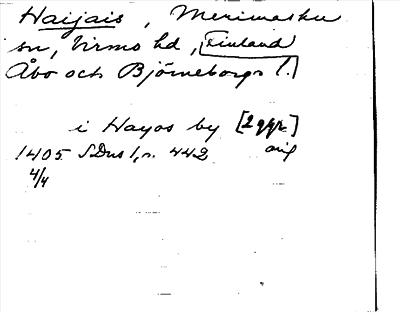 Haijais, Merimasku
sn, Virmo hd, Finland
Åbo och Björneborgs l.
i Hayos by [2 ggr]
1405 SDns 1, n. 442 orig
4/4